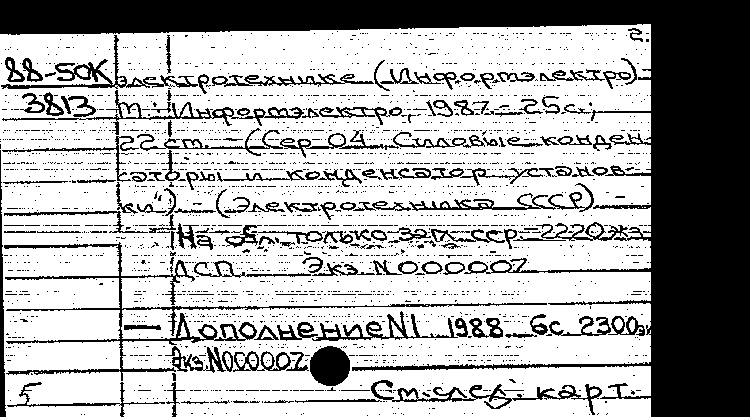 2.
88-50К электротехнике (Информэлектро).-
3813 М.: Информэлектро, 1987.- 25с.;
22 см. - (Сер 04 „Силовые конден-
саторы и конденсатор. установ-
ки") - (Электротехника СССР) -
На обл. только загл. сер.-2220экз.
ДСП. Экз N000007
— Дополнение N1. 1988. 6с. 2300эк
Экз.N000007
5 См. след. карт.